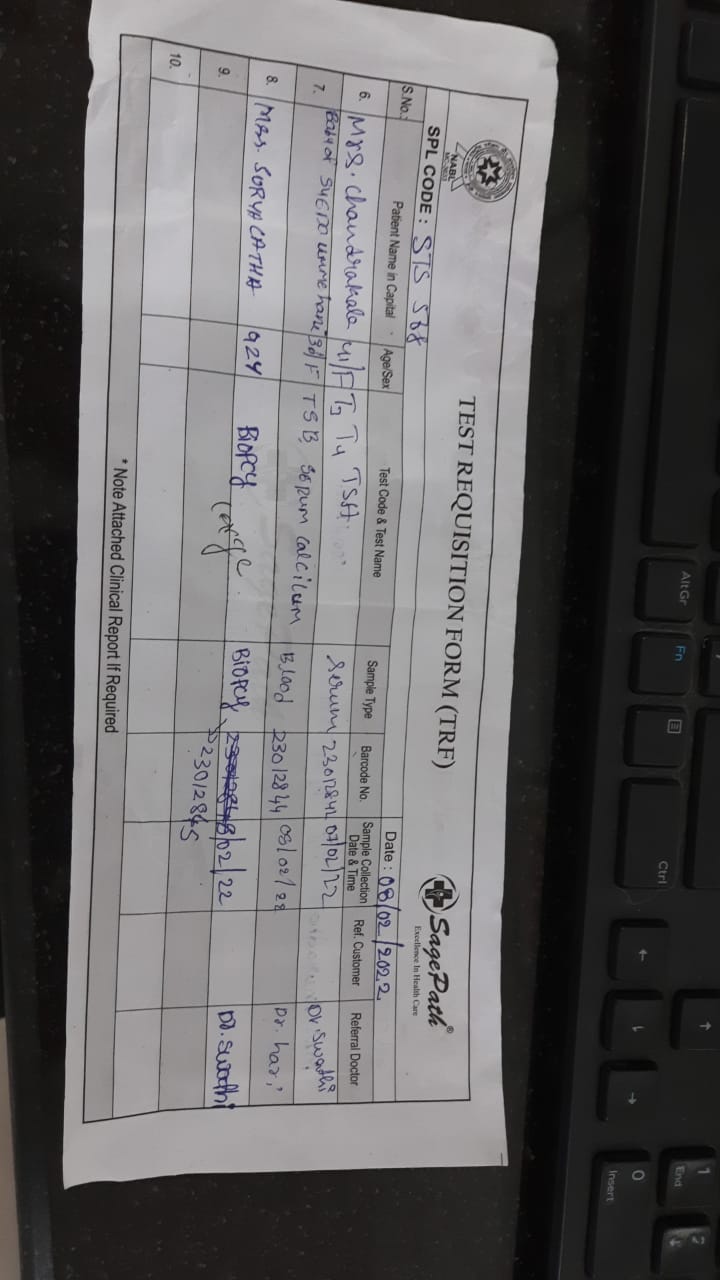 NABL
TEST REQUISITION FORM (TRF)
SagePath®
Excellence In Health Care
SPL CODE : STS 568
Date : 08/02/2022
S.No.: Patient Name in Capital Age/Sex Test Code & Test Name Sample Type Barcode No. Sample Collection Date & Time Ref. Customer Referral Doctor
6. Mrs. Chandrakala 41/F T3 T4 TSH. Serum 23012842 07/02/22 Dr. Swathi
7. Baby of 3d/F TSB, Serum Calcilum Blood 23012844 08/02/22 Dr. hari
8. Mrs. SURYACATHA 42Y Biopcy Large. Biopcy 8/02/22 Dr. Swathi
23012845
9.
10.
* Note Attached Clinical Report If Required
AltGr
Fn
Ctrl
1
End
2
0
Insert